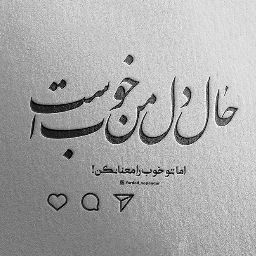 حال دل من خوب است
اما تو خوب را معنا بکن!